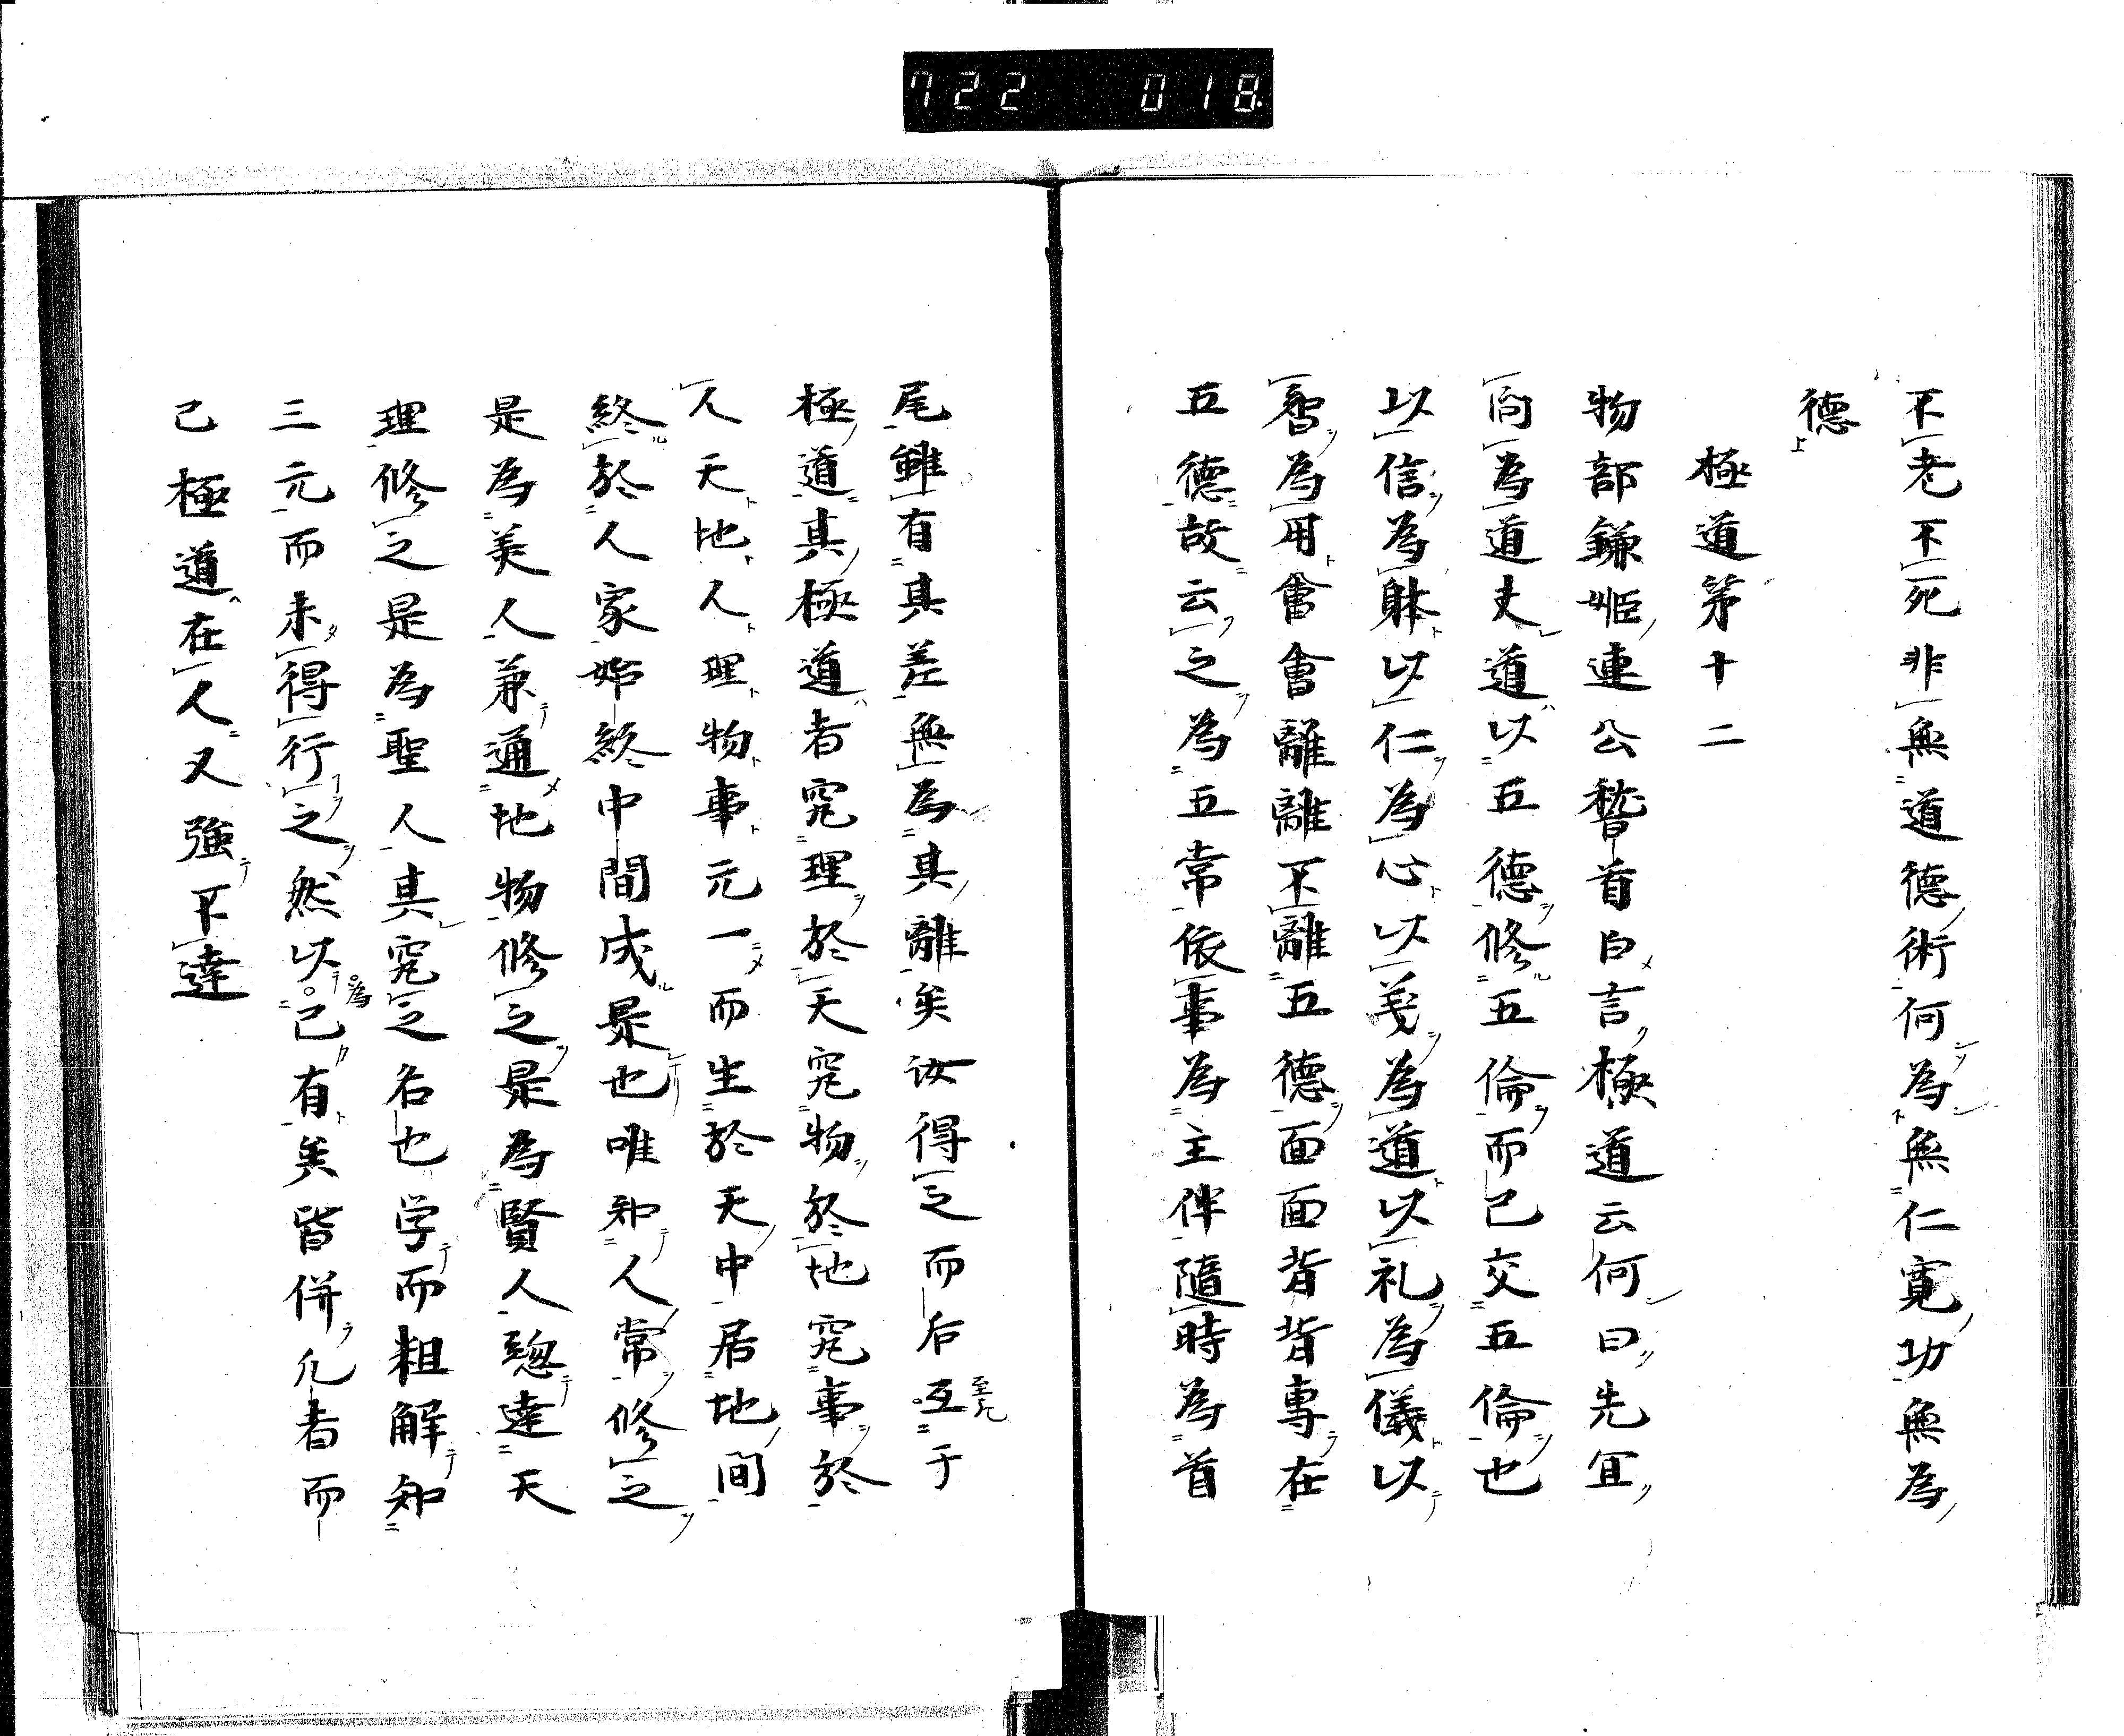 722 018
不老不死非無道德術何為無仁寛功無為
德
極道第十二
物部鎌姫連公稽首白言極道云何曰先宜
向為道丈道以五德修五倫而已交五倫也
以信為躰以仁為心以義為道以礼為儀以
智為用會會離離不離五德面面背背專在
五德故云之為五常依事為主伴隨時為首
尾雖有其差無為其離矣汝得之而后互于
至凡
極道其極道者究理於天究物於地究事於
人天地人理物事元一而生於天中居地間
終於人家始終中間成是也唯知人常修之
是為美人兼通地物修之是為賢人總達天
理修之是為聖人其究之名也学而粗解知
三元而未得行之然以己有矣皆併凡者而
為
己極道在人又強不達